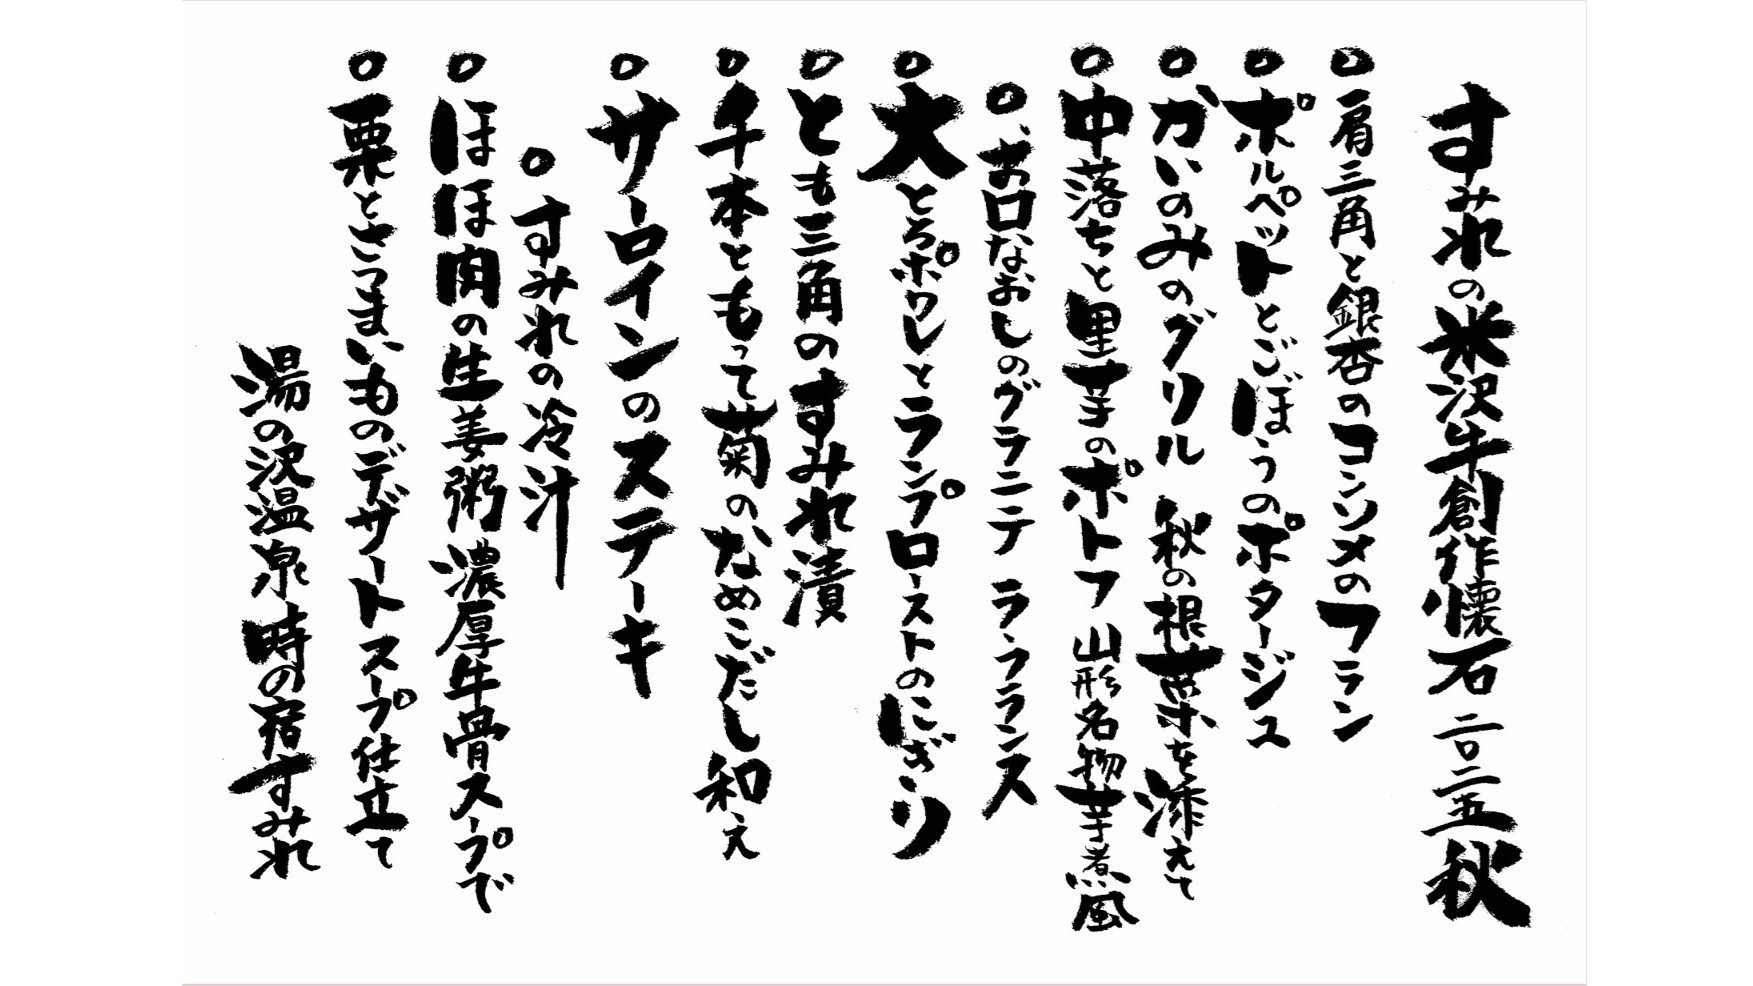 すみれの米沢牛創作懐石 二〇二五 秋
○肩三角と銀杏のコンソメのフラン
○ポルペットとごぼうのポタージュ
○かいのみのグリル 秋の根菜を添えて
○中落ちと里芋のポトフ 山形名物芋煮風
○お口なおしのグラニテ ラ・フランス
○大とろポワレとランプローストのにぎり
○とも三角のすみれ漬
○千本ともって菊のなめこだし和え
○サーロインのステーキ
○すみれの冷汁
○ほほ肉の生姜粥 濃厚牛骨スープで
○栗とさつまいものデザートスープ仕立て
湯の沢温泉 時の宿すみれ